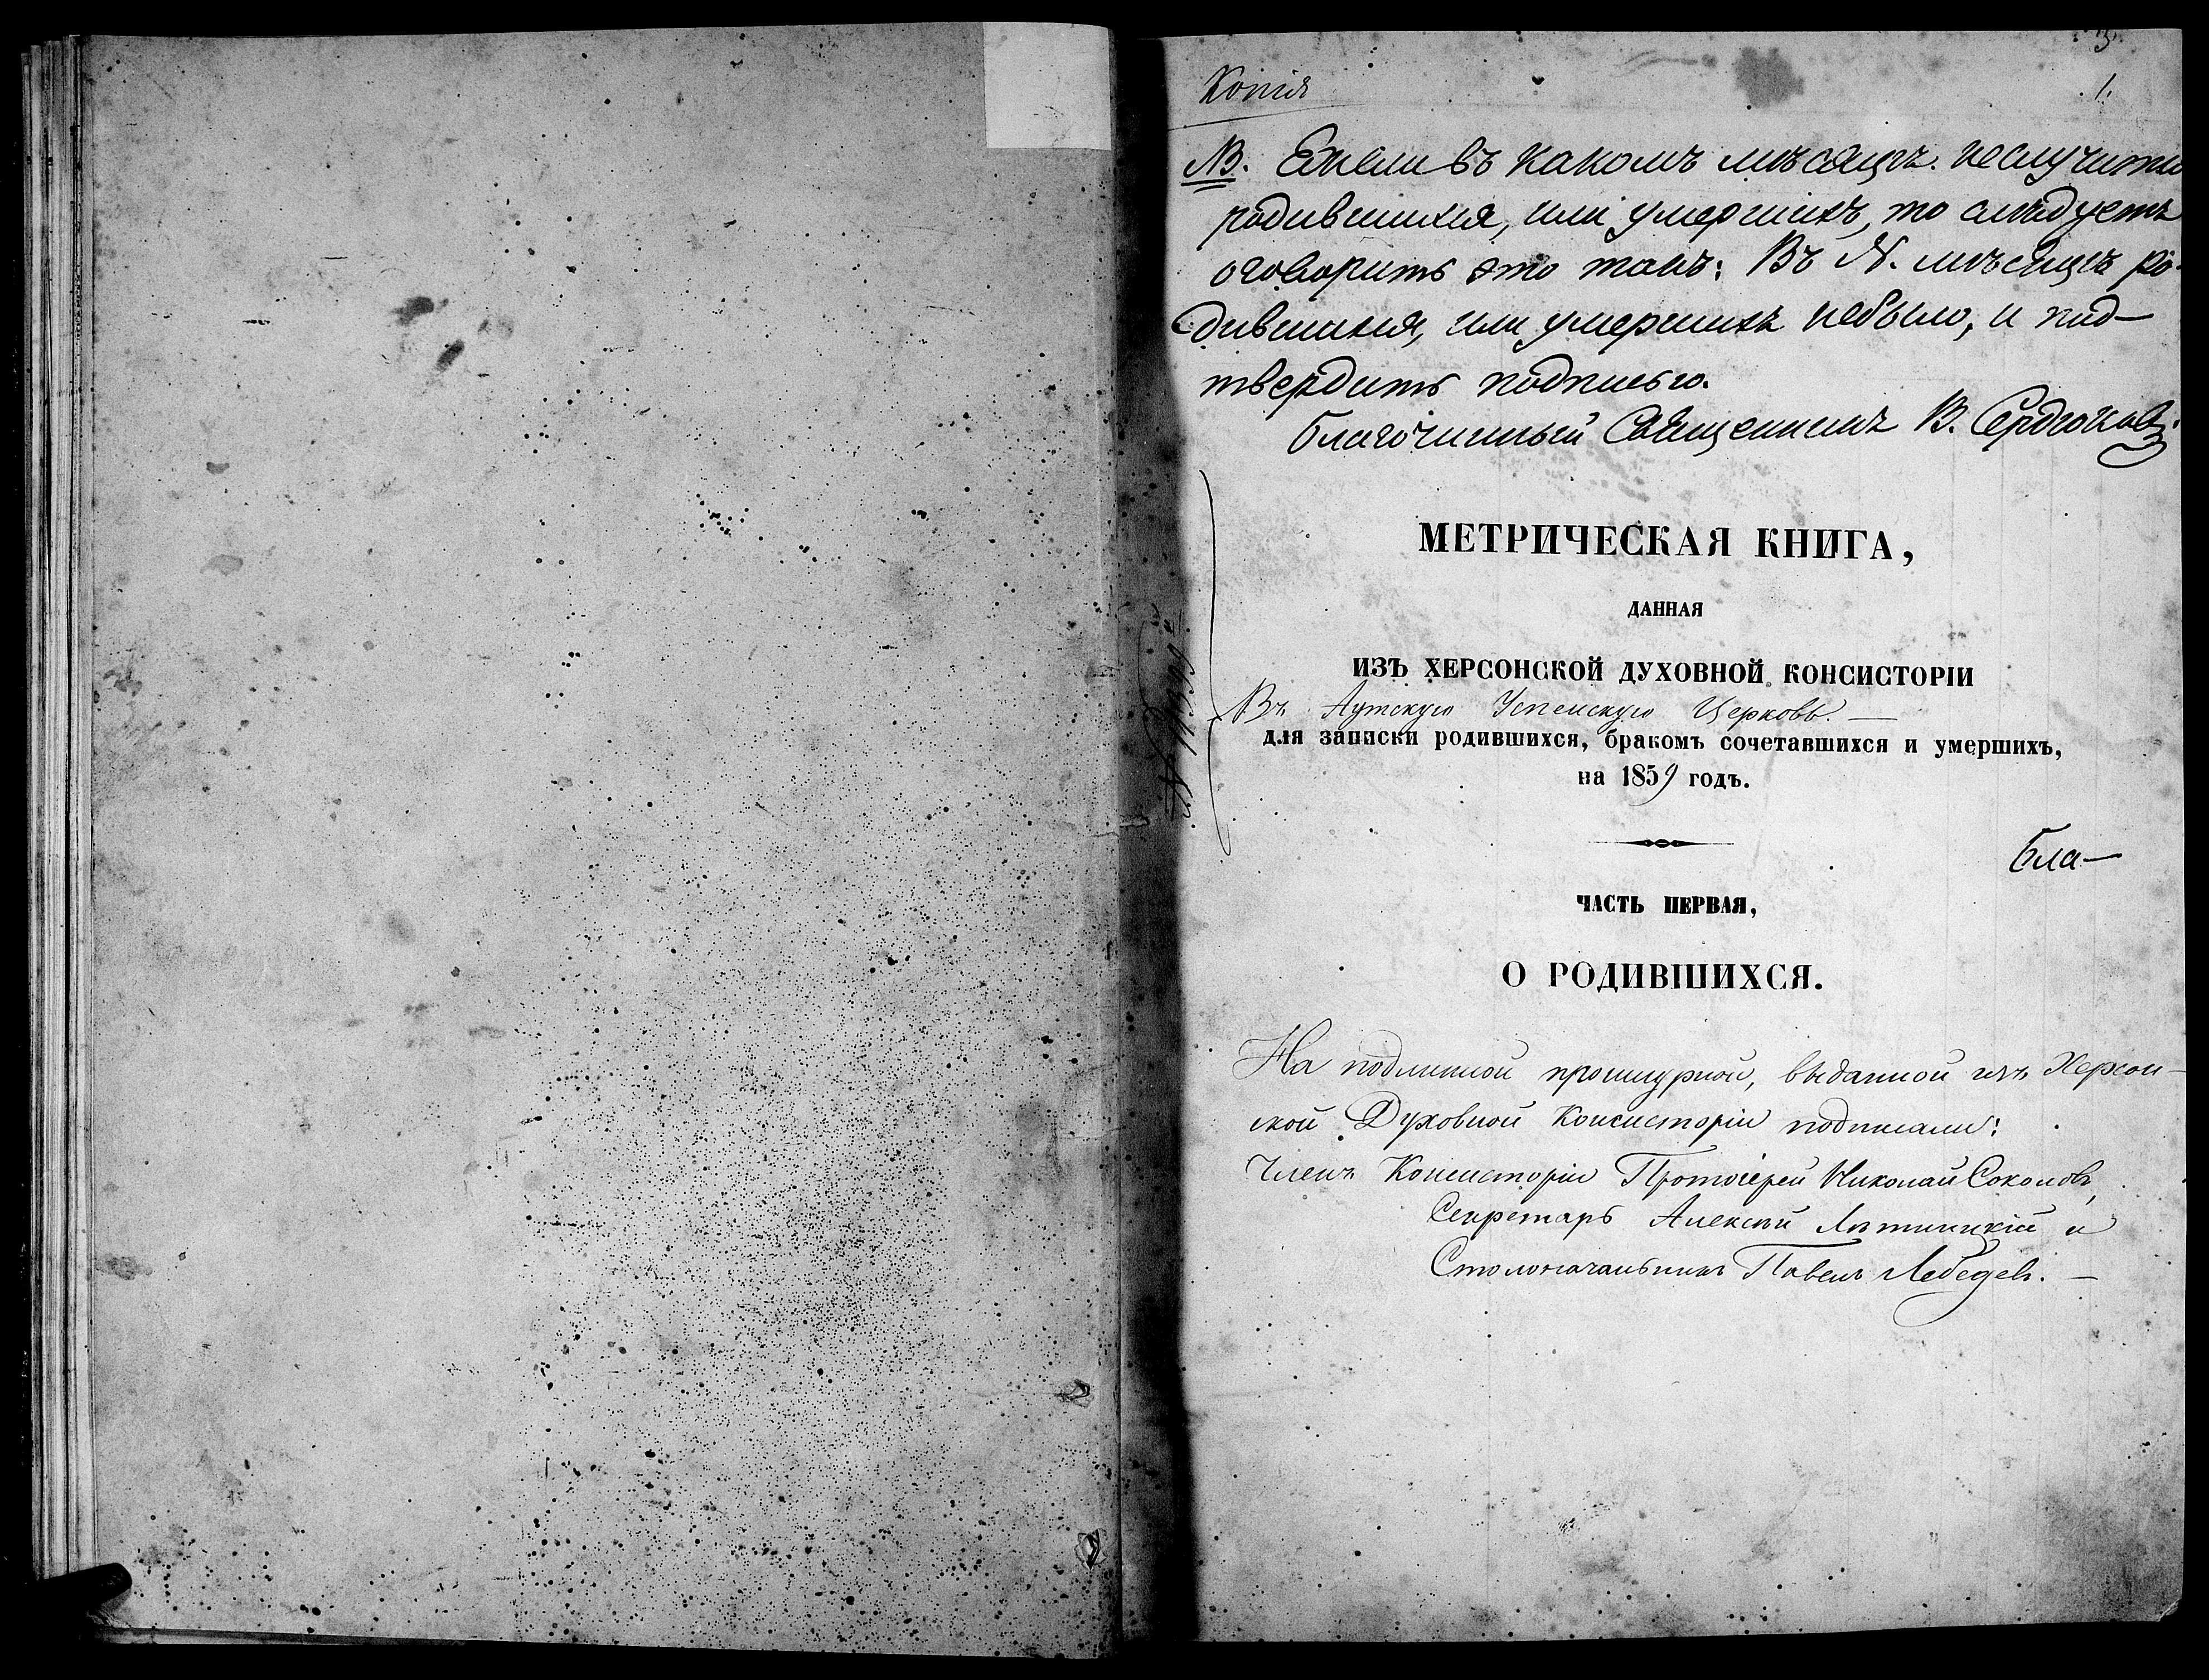 3.
Копія
1.
NB. Ежели въ какомъ мѣсяцѣ неслучится
родившихся, или умершихъ, то слѣдуетъ
оговорить это такъ: Въ N. мѣсяцѣ ро-
дившихся, или умершихъ небыло, и под-
твердить подписью.
Благочинный Священникъ В. Сердюковъ
МЕТРИЧЕСКАЯ КНИГА,
ДАННАЯ
ИЗЪ ХЕРСОНСКОЙ ДУХОВНОЙ КОНСИСТОРІИ
Въ Аутскую Успенскую Церковь. —
для записки родившихся, бракомъ сочетавшихся и умершихъ,
на 1859 годъ.
Бла—
ЧАСТЬ ПЕРВАЯ,
О РОДИВШИХСЯ.
На подлинной прошнурной, выданной изъ Херсон-
ской Духовной Консисторіи подписали:
Членъ Консисторіи Протоіерей Николай Соколовъ,
Секретарь Алексѣй и
Столоначальникъ Павелъ Лебедевъ. —